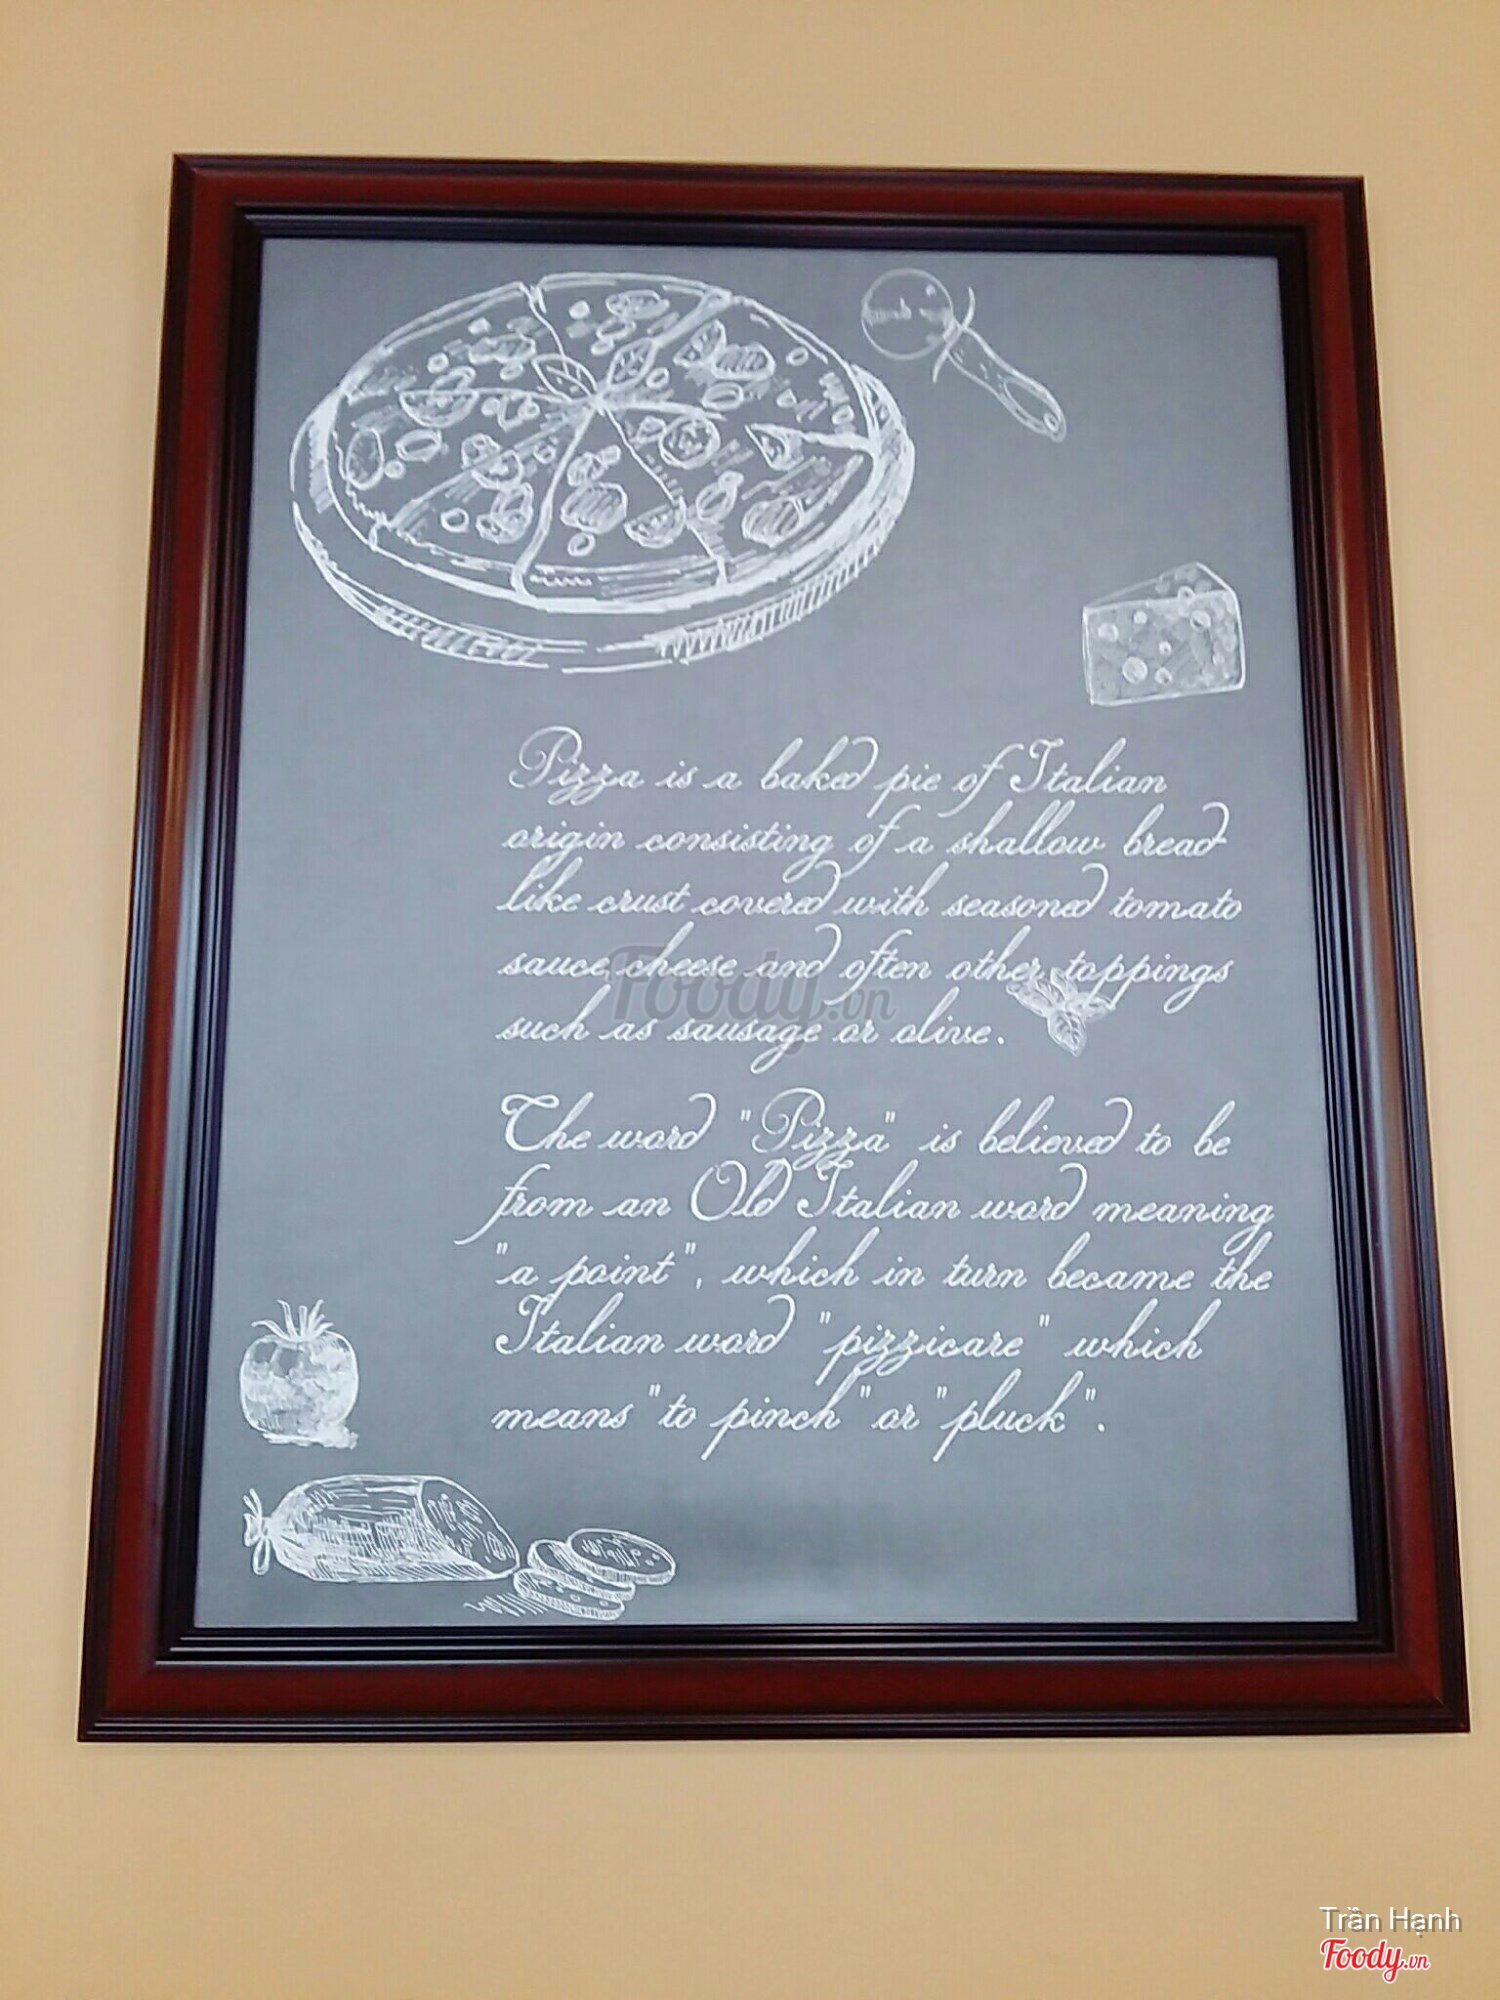 Pizza is a baked pie of Italian
origin consisting of a shallow bread
like crust covered with seasoned tomato
sauce, cheese and often other toppings
such as sausage or olive.
The word "Pizza" is believed to be
from an Old Italian word meaning
"a point", which in turn became the
Italian word "pizzicare" which
means "to pinch" or "pluck".
Foody.vn
Trần Hạnh
Foody.vn